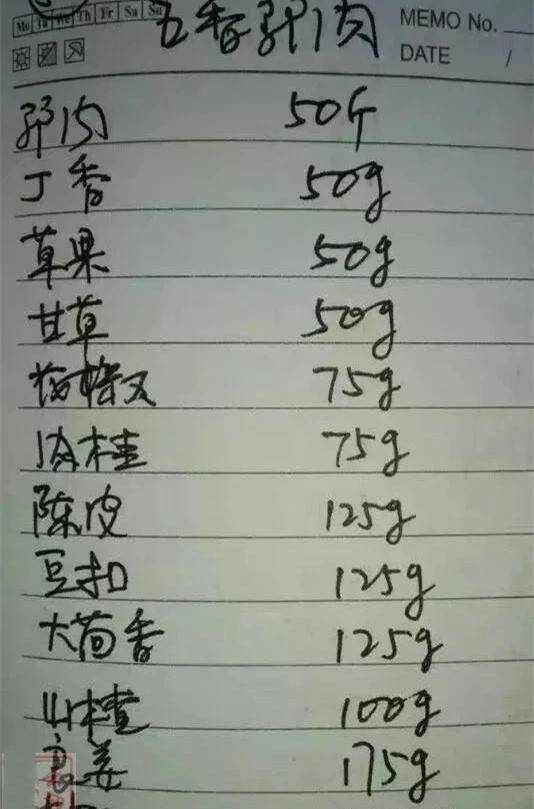 Mo Tu We Th Fr Sa Su
MEMO No.
五香驴肉
DATE /
驴肉 50斤
丁香 50g
草果 50g
甘草 50g
75g
肉桂 75g
陈皮 125g
豆扣 125g
大茴香 125g
山楂 100g
良姜 175g